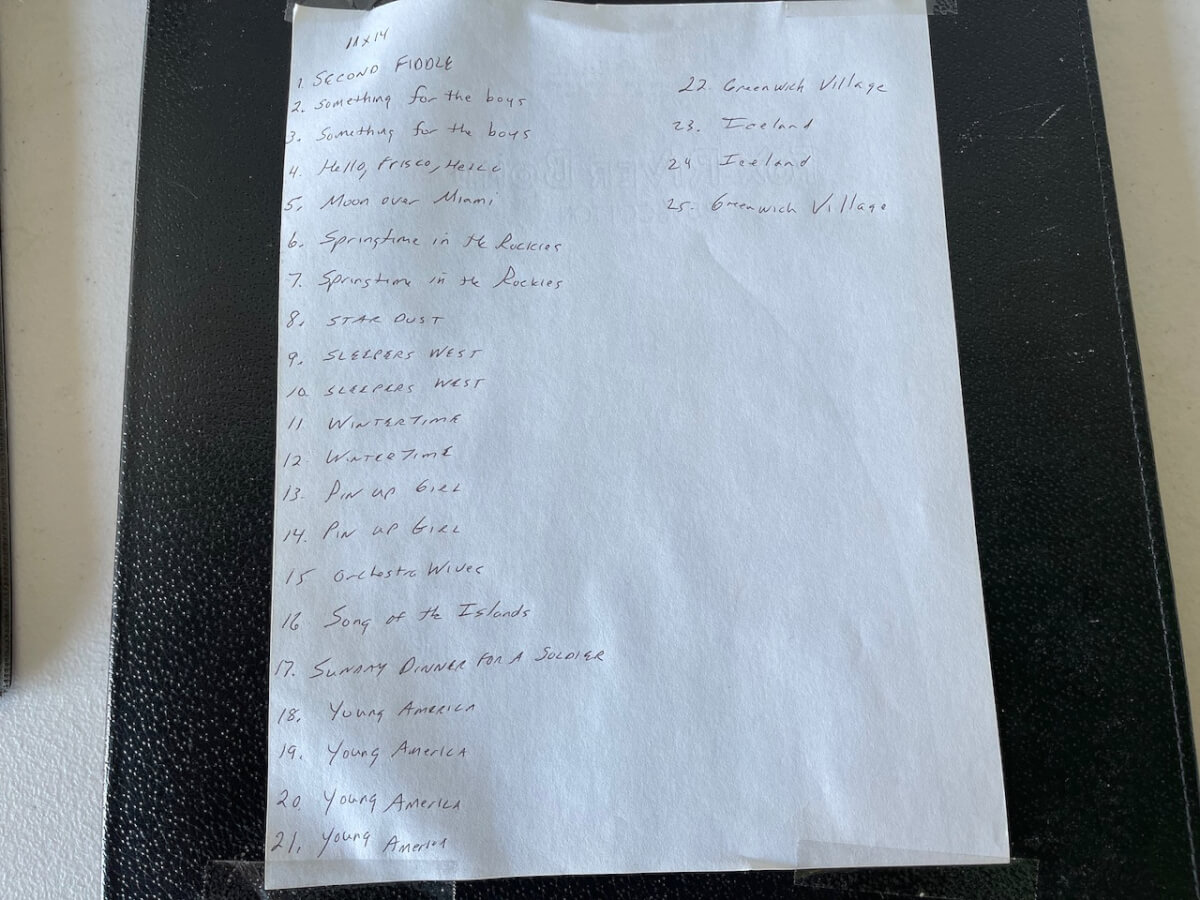 11x14
1. SECOND FIDDLE
2. Something for the boys
3. Something for the boys
4. Hello, Frisco, Hello
5. Moon over Miami
6. Springtime in the Rockies
7. Springtime in the Rockies
8. STAR DUST
9. SLEEPERS WEST
10. SLEEPERS WEST
11. WINTERTIME
12. WINTERTIME
13. PIN UP GIRL
14. PIN UP GIRL
15 Orchestra Wives
16. Song of the Islands
17. SUNDAY DINNER FOR A SOLDIER
18. Young AMERICA
19. Young AMERICA
20. Young AMERICA
21. Young America
22. Greenwich Village
23. Iceland
24 Iceland
25. Greenwich Village